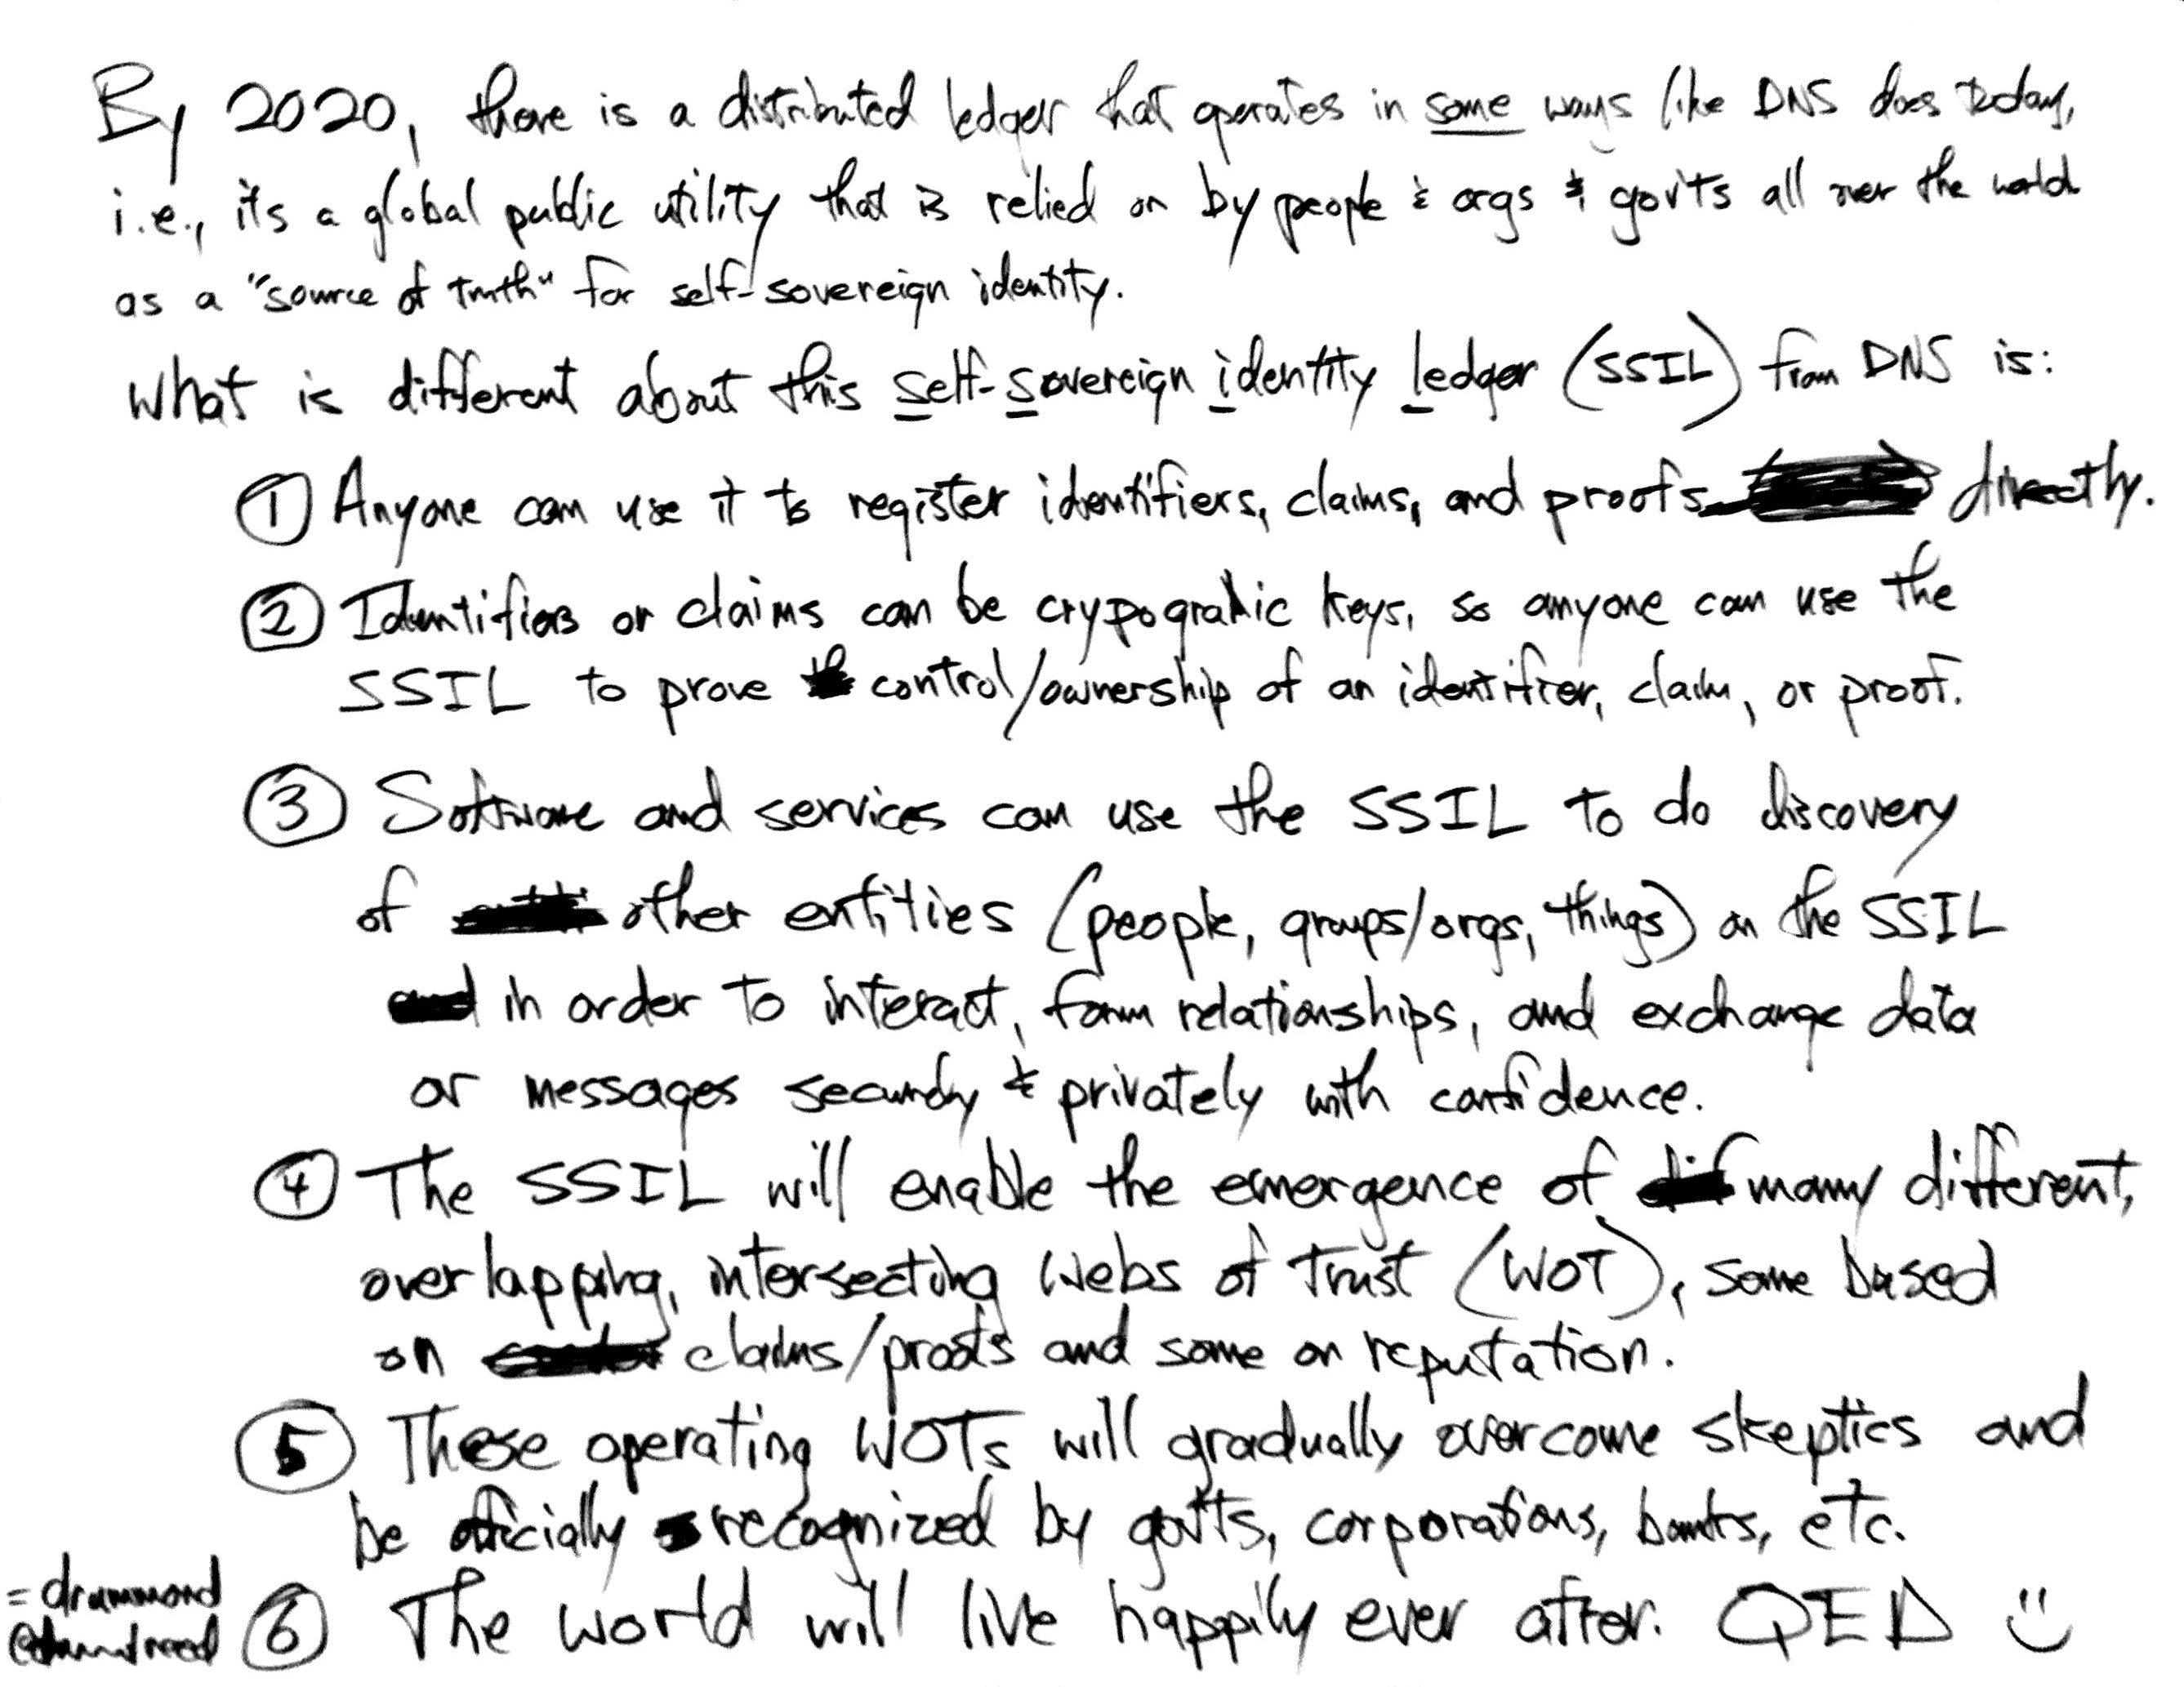 By 2020, there is a distributed ledger that operates in some ways like DNS does today,
i.e., its a global public utility that is relied on by people & orgs & gov'ts all over the world
as a "source of truth" for self-sovereign identity.
What is different about this self-sovereign identity ledger (SSIL) from DNS is:
① Anyone can use it to register identifiers, claims, and proofs directly.
② Identifiers or claims can be crypograhic keys, so anyone can use the
SSIL to prove control/ownership of an identifier, claim, or proof.
③ Software and services can use the SSIL to do discovery
of other entities (people, groups/orgs, things) on the SSIL
in order to interact, form relationships, and exchange data
or messages securely & privately with confidence.
④ The SSIL will enable the emergence of many different,
overlapping, intersecting webs of trust (WOT), some based
on claims/proofs and some on reputation.
⑤ These operating WOTs will gradually overcome skeptics and
be officially recognized by gov'ts, corporations, banks, etc.
⑥ The world will live happily ever after. QED
=drummond